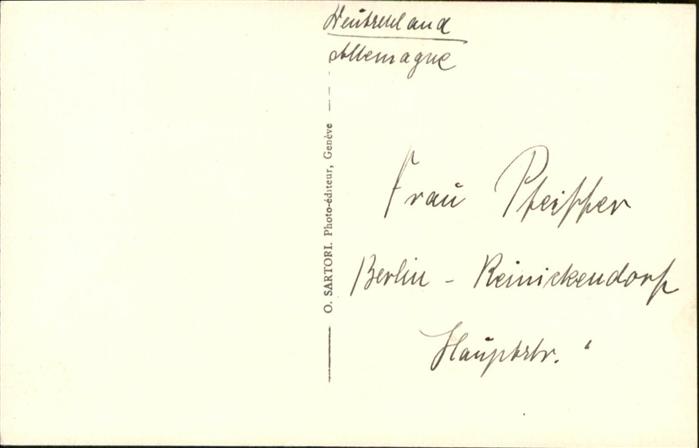 Deutschland
Allemagne
O. SARTORI. Photo-éditeur, Genève
Frau Pfeiffer
Berlin - Reinickendorf
Hauptstr.